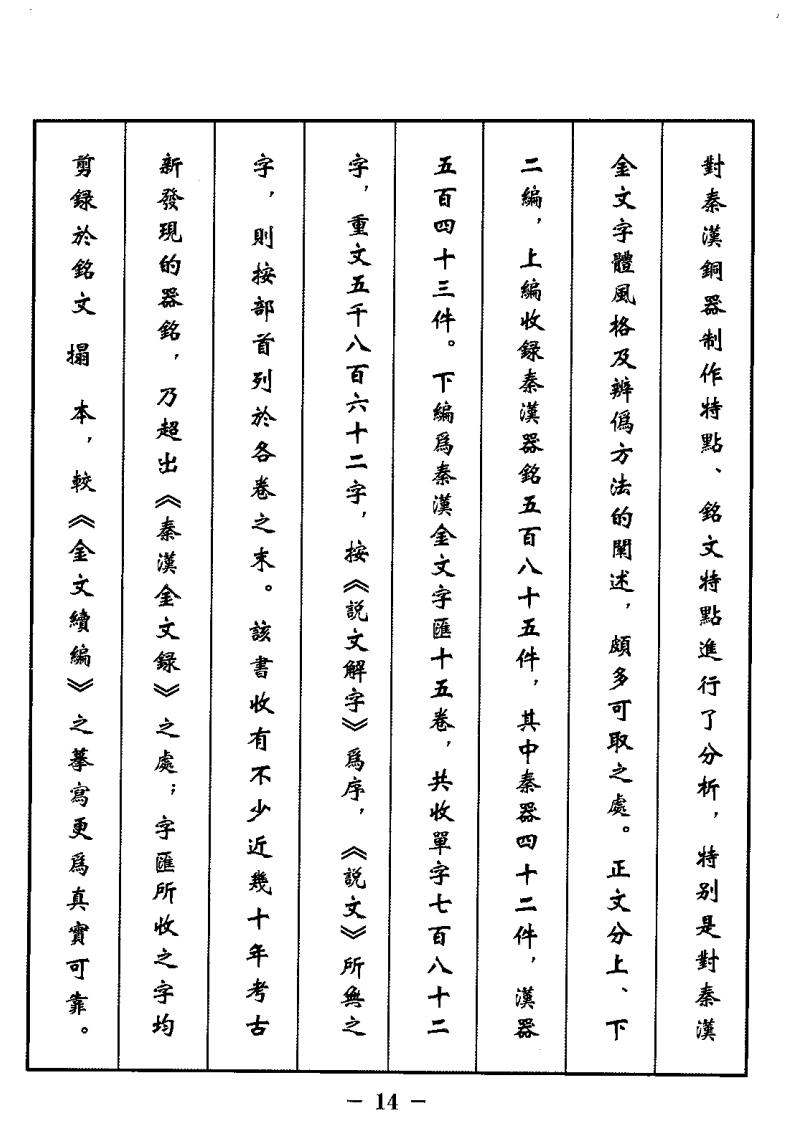 對秦漢銅器制作特點、銘文特點進行了分析，特别是對秦漢
金文字體風格及辨僞方法的闡述，頗多可取之處。正文分上、下
二編，上編收録秦漢器銘五百八十五件，其中秦器四十二件，漢器
五百四十三件。下編爲秦漢金文字匯十五卷，共收單字七百八十二
字，重文五千八百六十二字，按《説文解字》爲序，《説文》所無之
字，則按部首列於各卷之末。該書收有不少近幾十年考古
新發現的器銘，乃超出《秦漢金文録》之處；字匯所收之字均
剪録於銘文搨本，較《金文續編》之摹寫更爲真實可靠。
— 14 —